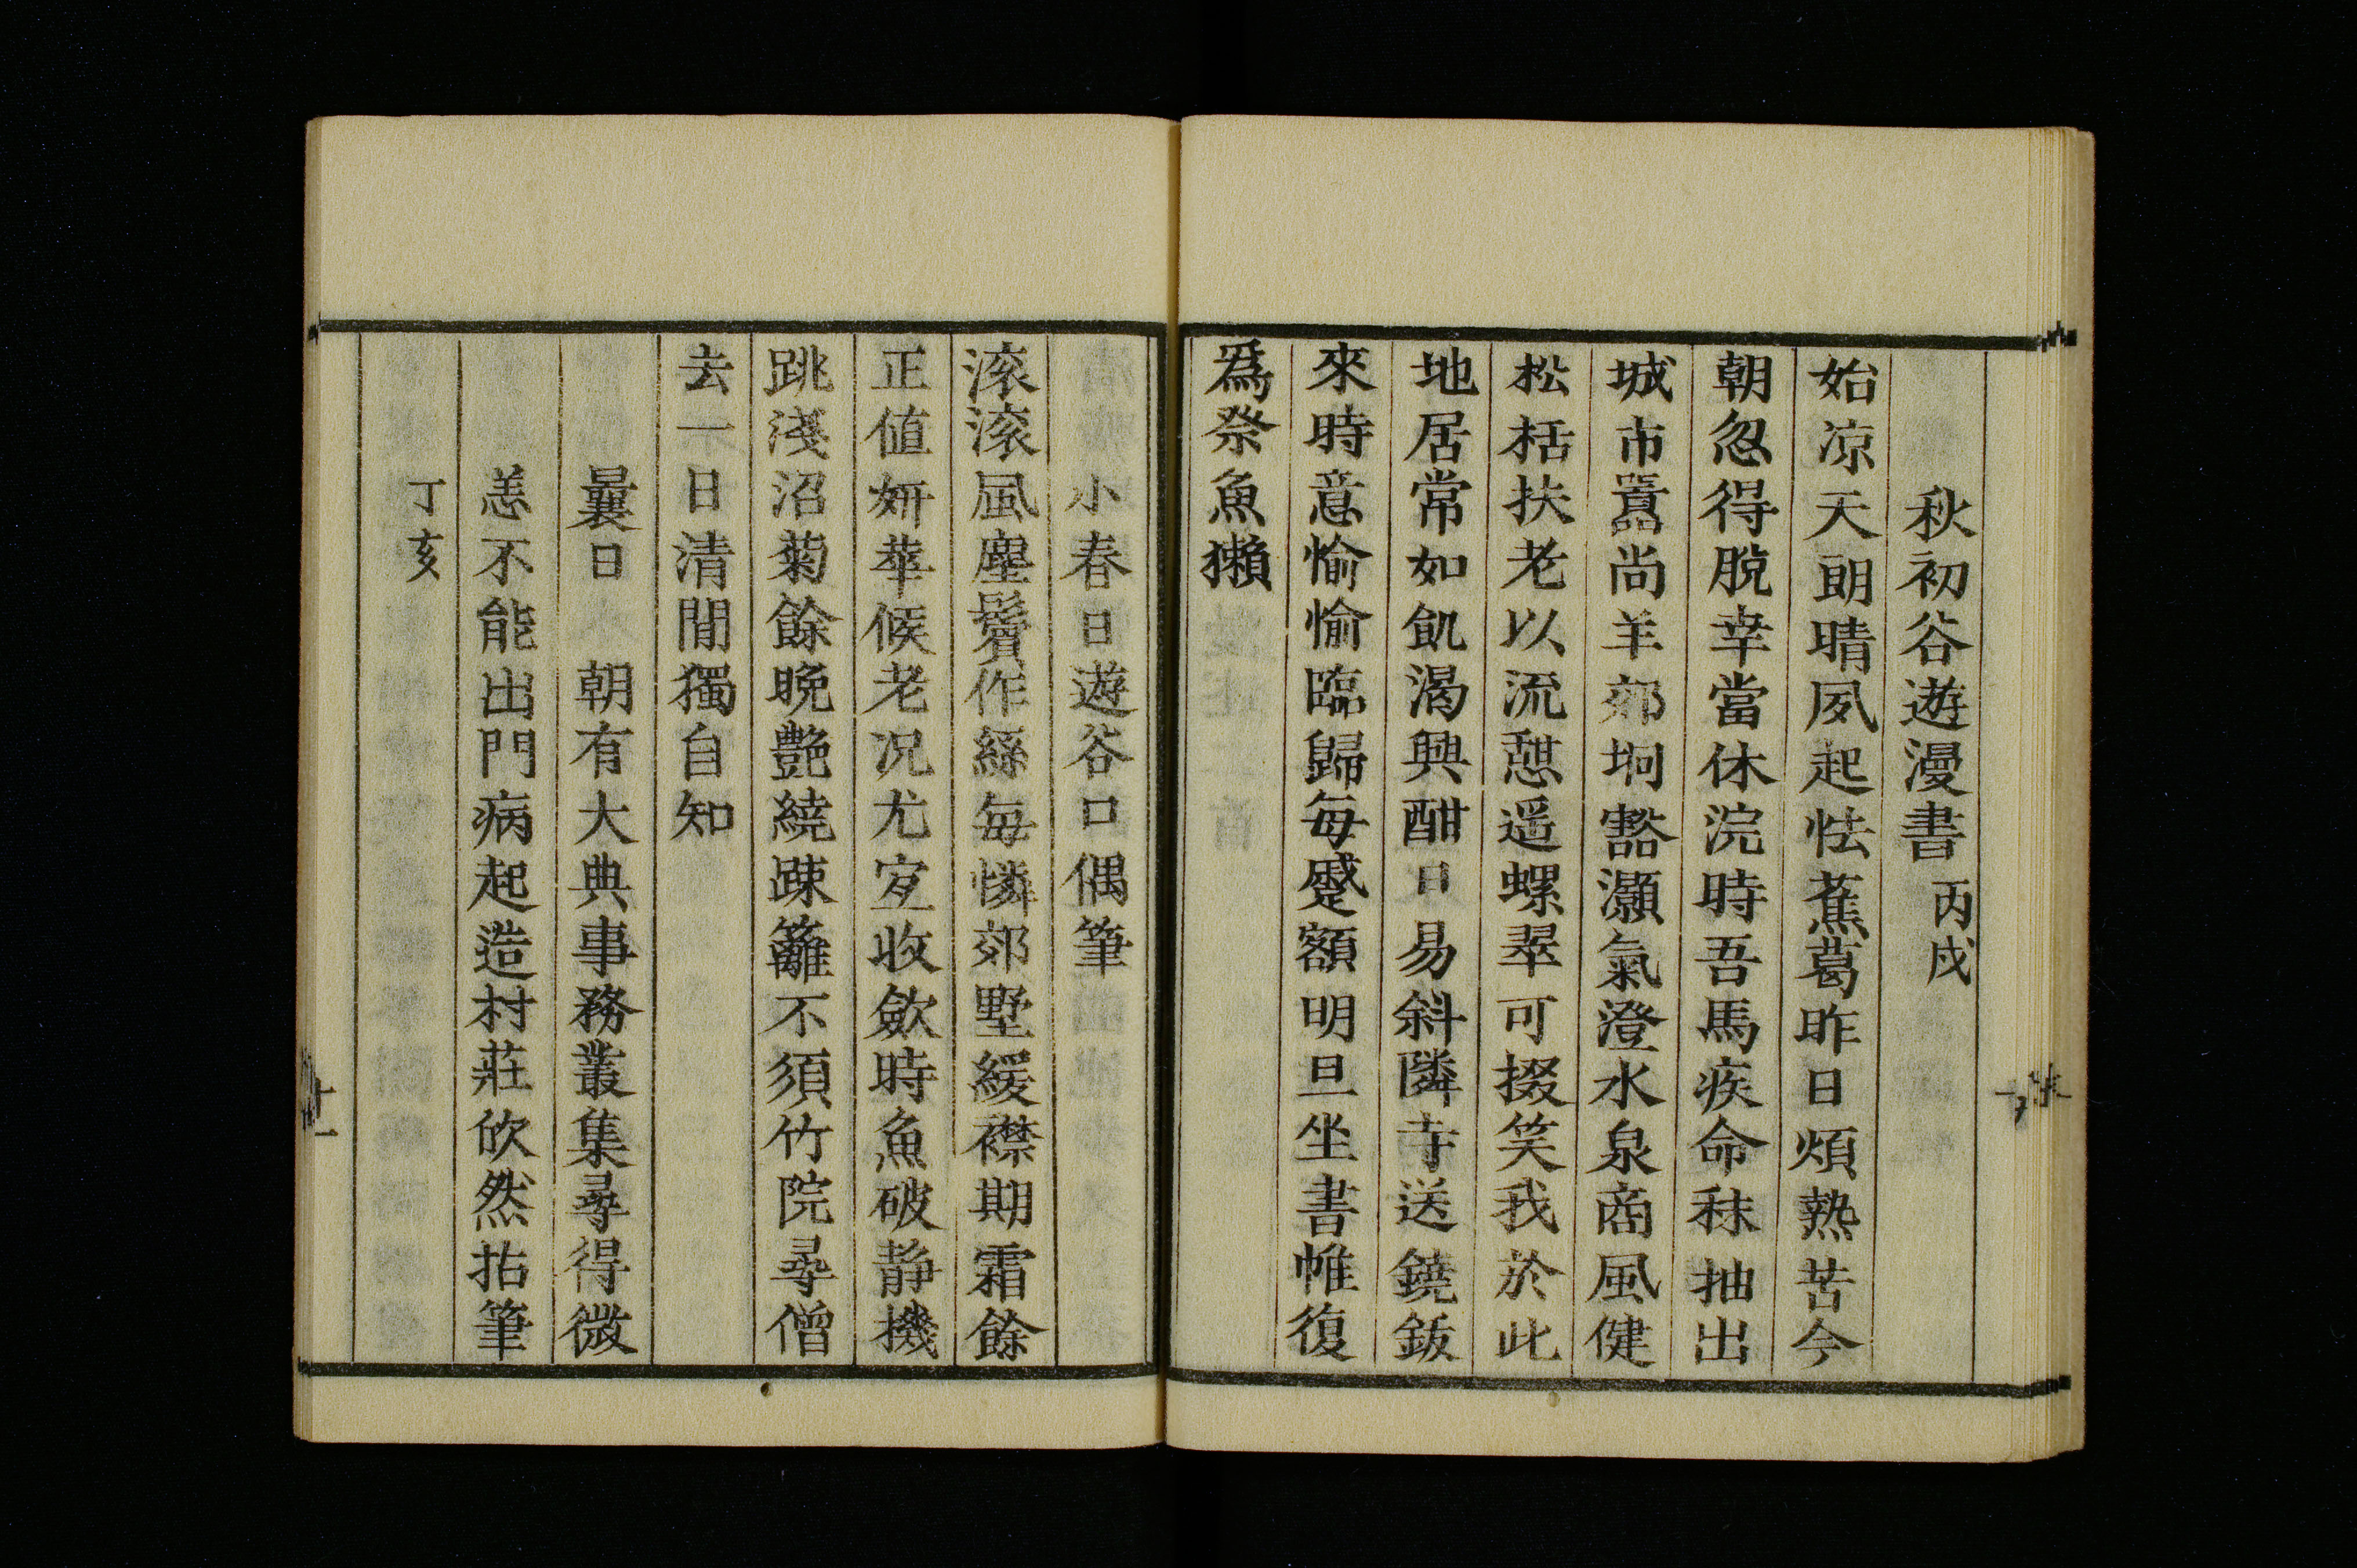 秋初谷遊漫書 丙戌
始凉天朗晴夙起怯蕉葛昨日煩熱苦今
朝忽得脫幸當休浣時吾馬疾命秣抽出
城市囂尚羊郊坰豁灝氣澄水泉商風健
松栝扶老以流憇遥螺翠可掇笑我於此
地居常如飢渴興酣日易斜隣寺送鐃鈸
來時意愉愉臨歸每蹙額明旦坐書帷復
爲祭魚獺
小春日遊谷口偶筆
滚滚風塵鬢作絲每憐郊墅緩襟期霜餘
正值妍華候老况尤宐收歛時魚破静機
跳淺沼菊餘晚艷繞踈籬不須竹院尋僧
去一日清閒獨自知
曩日 朝有大典事務叢集尋得微
恙不能出門病起造村莊欣然拈筆
丁亥
十一